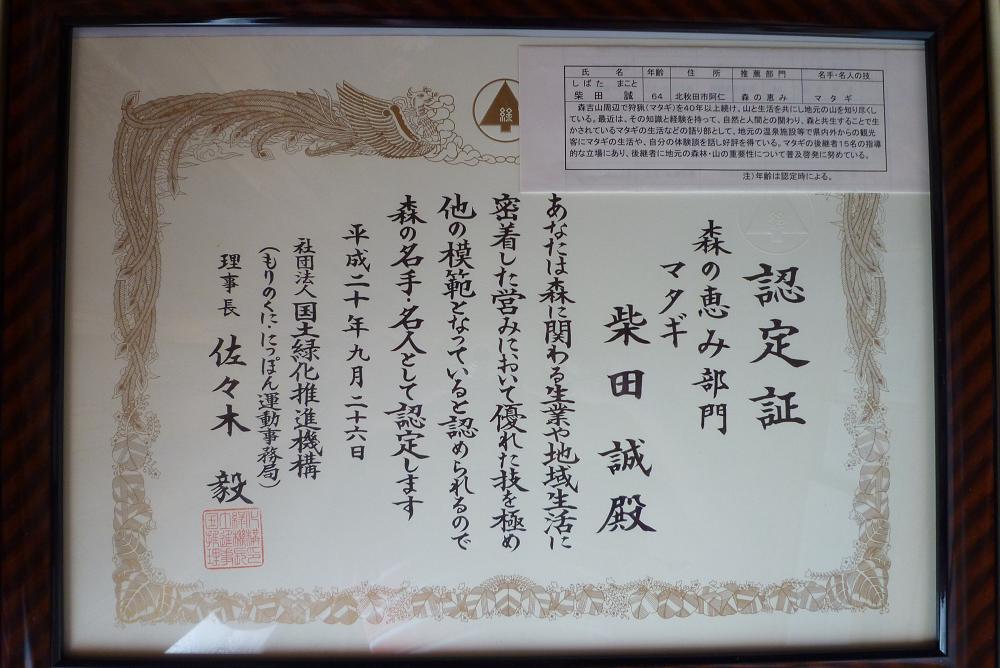 氏 名 年齢 住 所 推薦部門 名手・名人の技
しばた まこと
柴田 誠 64 北秋田市阿仁 森の恵み マタギ
森吉山周辺で狩猟(マタギ)を40年以上続け、山と生活を共にし地元の山を知り尽くし
ている。最近は、その知識と経験を持って、自然と人間との関わり、森と共生することで生
かされているマタギの生活などの語り部として、地元の温泉施設等で県内外からの観光
客にマタギの生活や、自分の体験談を話し好評を得ている。マタギの後継者15名の指導
的な立場にあり、後継者に地元の森林・山の重要性について普及啓発に努めている。
注)年齢は認定時による。
経
認定証
森の恵み部門
マタギ
柴田 誠 殿
あなたは森に関わる生業や地域生活に
密着した営みにおいて優れた技を極め
他の模範となっていると認められるので
森の名手・名人として認定します
平成二十年九月二十六日
社団法人国土緑化推進機構
(もりのくに・にっぽん運動事務局)
理事長 佐々木 毅